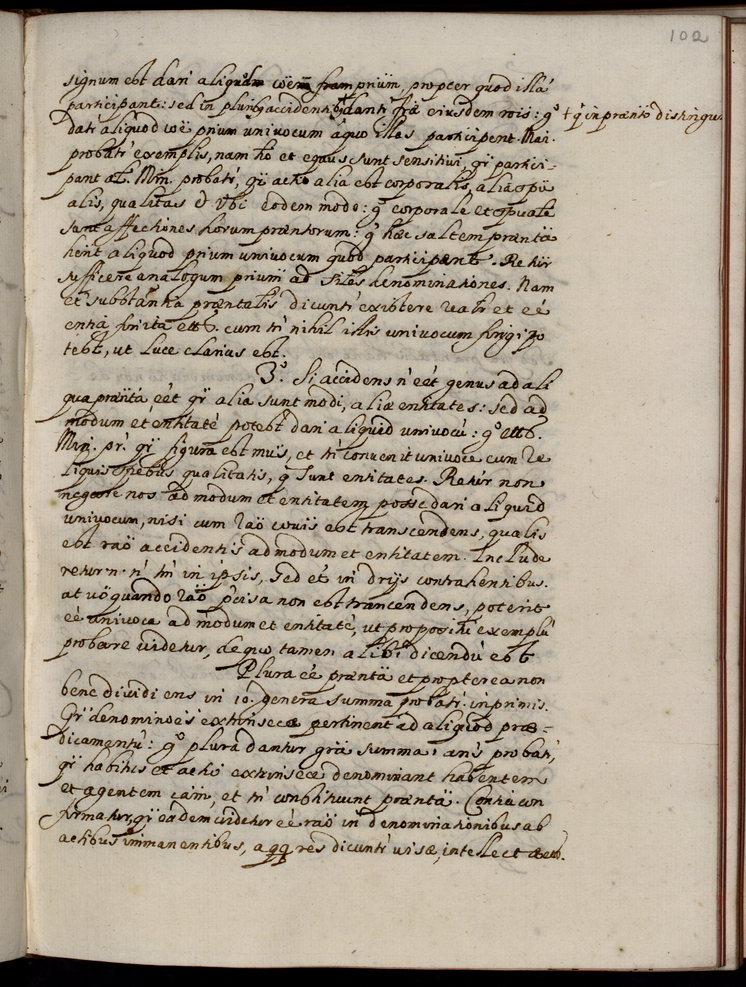 102
signum est dari aliquod coë prium, propter quod illâ
participant: sed in pluribus accidentibus dantr ejusdem rois: gº + qⁱ in prænto distingu
datr aliquod coë prium univocum a quo illas participent. Mai.
probatr exemplis, nam hō et equus sunt sensitivi, qⁱ partici-
pant al. Min. probatr, qⁱ actio alia est corporalis, alia spü
alis, qualitas et Vbi eodem modo: gº corporale et spüale
sunt affectiones horum præntorum: gº hæc saltem præntä
hent aliquod prium univocum quod participent. Retur
sufficere analogum prium ad siles denominationes. Nam
et substantia præntalis dicuntr existere realr et eé
entia finita ettc. cum tñ nihil illis univocum fingi po
test, ut luce clarius est.
3º. Si accidens n' eét genus ad ali
qua præntá, eét qⁱ alia sunt modi, aliæ entitates: sed ad
modum et entitaté potest dari aliquid univocú: gº ettc.
Min. pr. qⁱ figura est mus, et tñ convenit univoce cum re
liquis spebus qualitatis, q Sunt entitates. Retur non
negare nos ad modum et entitatem posse dari aliquid
univocum, nisi cum raö cöuis est transcendens, qualis
est raö accidentis ad modum et entitatem. Include
retur n. n' tñ in ipsis, sed et in drijs contrahentibus.
at vö quando raö pcisa non est trancendens, poterit
eé univoca ad modum et entitaté, ut propositi exemplú
probare videtur, de quo tamen alibi dicendú est
Plura eé præntä et propterea non
bene dividi ens in 10. genera summa probatr. inprimis.
Qⁱ denominoēs extrinsecæ pertinent ad aliquod præ-
dicamentú: gº plura dantur grä summa: ans probatr,
qⁱ habitus et actio extrinsece denominant habentem
et agentem cäm, et tñ constituunt præntä. Contra con
firmatur, qⁱ eadem videtur eé raö in denominationibus ab
actibus immanentibus, a qq res dicuntr visæ, intellectæ ettc.